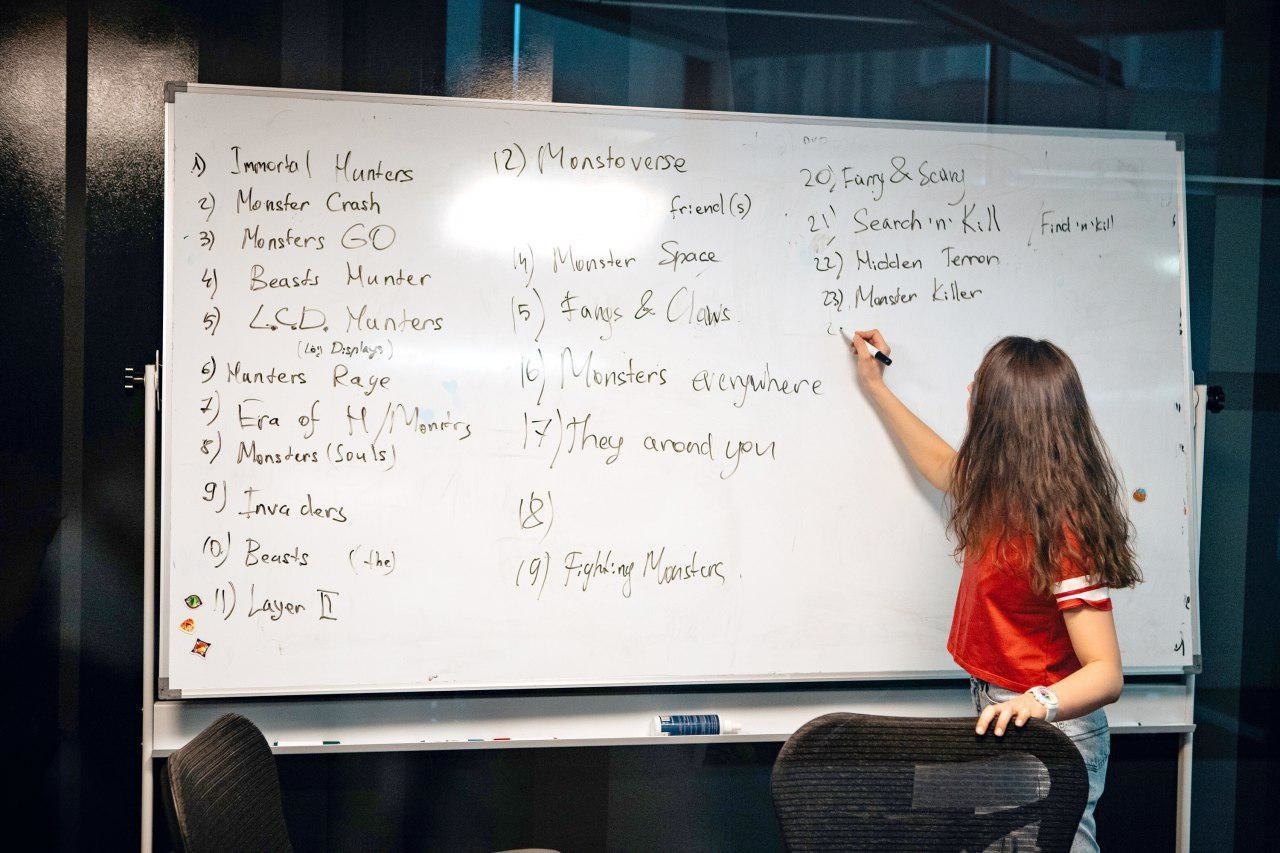 1) Immortal Hunters
2) Monster Crash
3) Monsters GO
4) Beasts Hunter
5) L.C.D. Hunters
Displays)
6) Hunters Rage
7) Era of H/Monstrs
8) Monsters (Souls)
9) Invaders
10) Beasts (the)
11) Layer II
12) Monstoverse
friend(s)
14) Monster Space
15) Fangs & Claws
16) Monsters everywhere
17) They arond you
18)
19) Fighting Monsters.
20) Furry & Scary
21) Search 'n' Kill / Find 'n' kill
22) Hidden Terror
23) Monster Killer
2